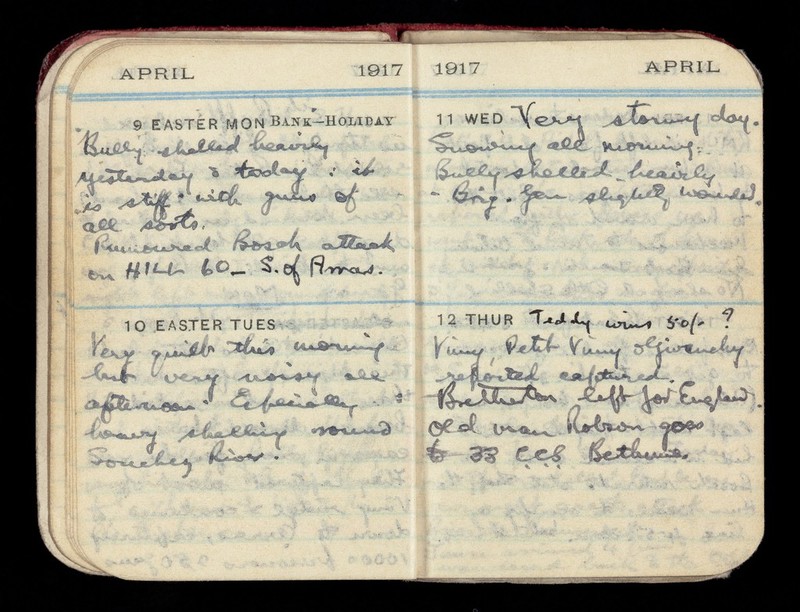 APRIL 1917
9 EASTER MON BANK–HOLIDAY
Bully shelled heavily
yesterday & today : it
is stiff with guns of
all sorts.
Rumoured Bosch attack
on HILL 60 – S. of Arras.
10 EASTER TUES
Very quiet this morning
but very noisy all
afternoon. Especially
heavy shelling round
Souchez River.
1917 APRIL
11 WED Very stormy day.
Snowing all morning.
Bully shelled heavily
- Brig. Gen slightly wounded.
12 THUR Teddy wins 50/- ?
Vimy, Petit Vimy & Givenchy
reported captured.
Bretherton left for England.
Old man Robson goes
to 33 C.C.S Bethune.